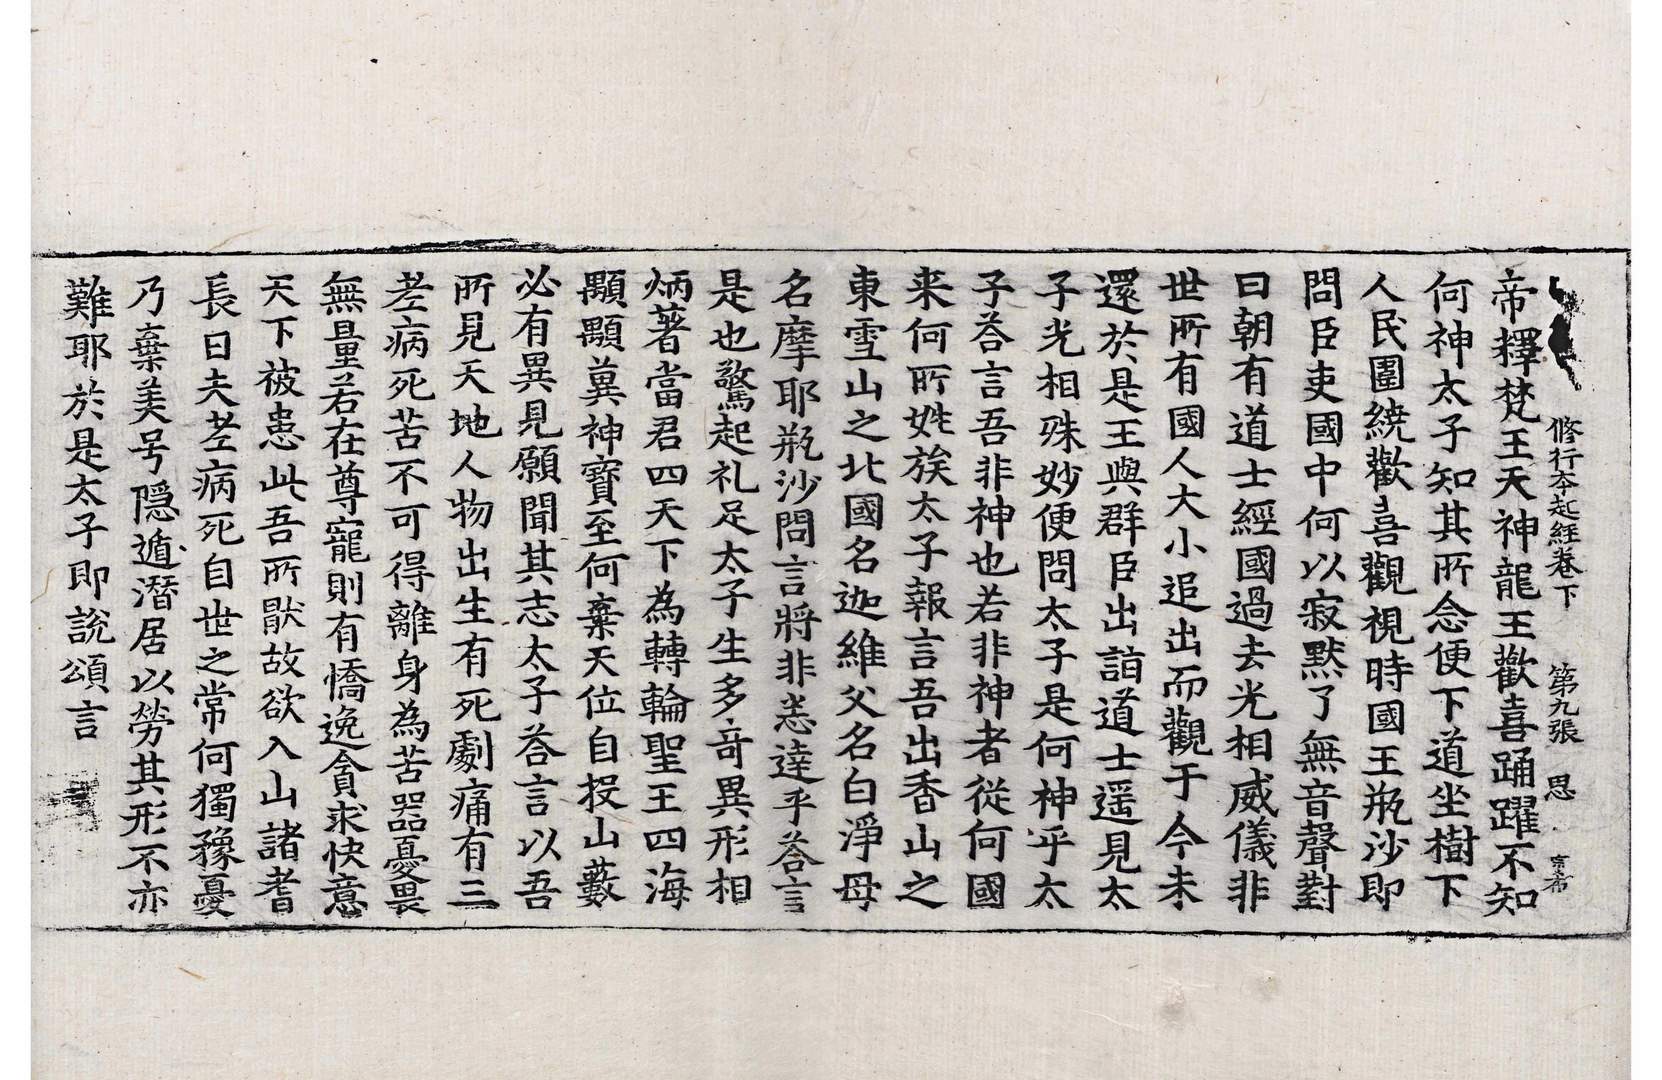 修行本起經卷下 第九張 思 宗者
帝釋梵王天神龍王歡喜踊躍不知
何神太子知其所念便下道坐樹下
人民圍繞歡喜觀視時國王瓶沙即
問臣吏國中何以寂默了無音聲對
曰朝有道士經國過去光相威儀非
世所有國人大小追出而觀于今未
還於是王與群臣出詣道士遥見太
子光相殊妙便問太子是何神乎太
子荅言吾非神也若非神者從何國
来何所姓族太子報言吾出香山之
東雪山之北國名迦維父名白淨母
名摩耶瓶沙問言將非悉達乎荅言
是也驚起礼足太子生多竒異形相
炳著當君四天下為轉輪聖王四海
顒顒兾神寶至何棄天位自投山藪
必有異見願聞其志太子荅言以吾
所見天地人物出生有死劇痛有三
老病死苦不可得離身為苦器憂畏
無量若在尊寵則有憍逸貪求快意
天下被患此吾所猒故欲入山諸耆
長曰夫老病死自世之常何獨豫憂
乃棄美号隐遁潜居以勞其形不亦
難耶於是太子即說頌言